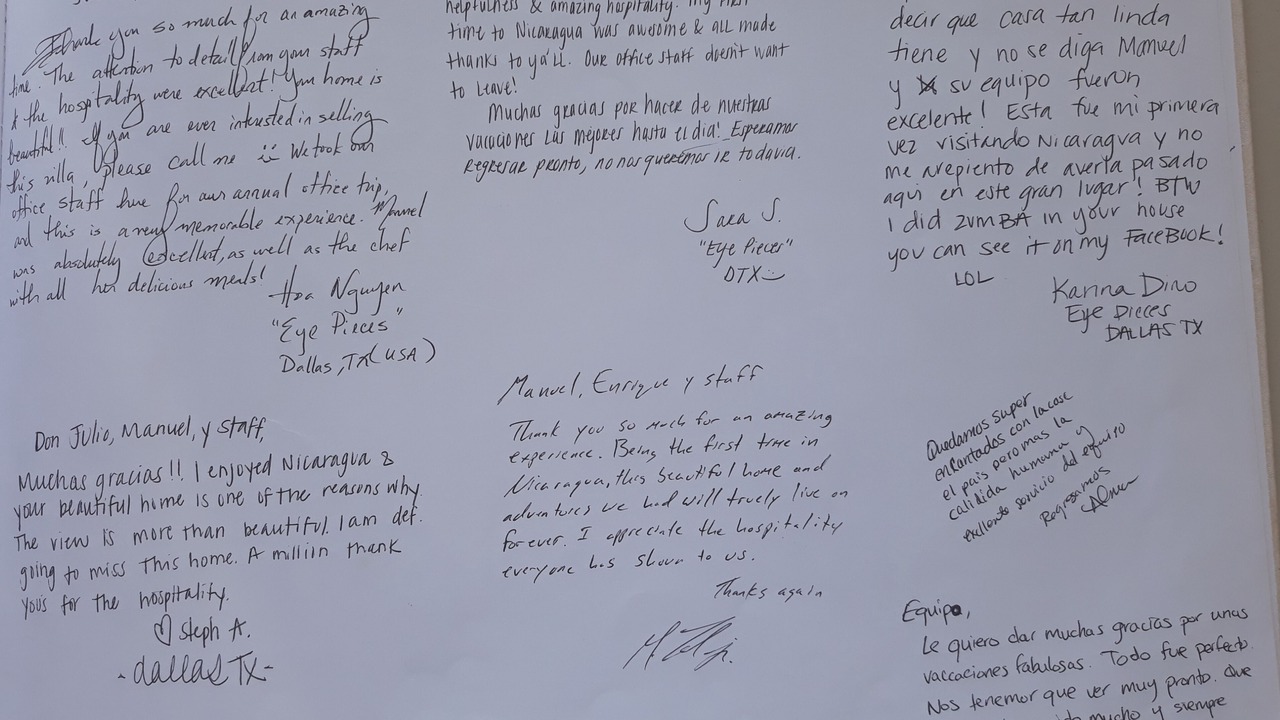 Thank you so much for an amazing
time. The attention to detail from your staff
& the hospitality were excellent! Your home is
beautiful!! If you are ever interested in selling
this villa, please call me We took our
office staff here for our annual office trip,
and this is a very memorable experience. Manuel
was absolutely excellent, as well as the chef
with all her delicious meals!
Hoa Nguyen
"Eye Pieces"
Dallas, TX (USA)
helpfulness & amazing hospitality. My first
time to Nicaragua was awesome & all made
thanks to ya'll. Our office staff doesn't want
to leave!
Muchas gracias por hacer de nuestras
vacaciones las mejores hasta el dia! Esperamos
Regresar pronto, no nos queremos ir todavia.
Sara S.
"Eye Pieces"
DTX
decir que casa tan linda
tiene y no se diga Manuel
y su equipo fueron
excelente! Esta fue mi primera
vez visitando Nicaragua y no
me arepiento de averla pasado
aqui en este gran lugar! BTW
I did ZUMBA in your house
you can see it on my FaceBook!
LOL
Karina Dino
Eye Pieces
DALLAS TX
Don Julio, Manuel, y staff,
Muchas gracias!! I enjoyed Nicaragua &
your beautiful home is one of the reasons why.
The view is more than beautiful. I am def.
going to miss this home. A million thank
yous for the hospitality.
♡ Steph A.
- dallas TX -
Manuel, Enrique y staff
Thank you so much for an amazing
experience. Being the first time in
Nicaragua, this beautiful home and
adventures we had will truely live on
forever. I appreciate the hospitality
everyone has shown to us.
Thanks again
Quedamos super
encantados con la case
el pais pero mas la
calidida humana y
exclente servicio del equipo
Regresamos
Equipo,
Le quiero dar muchas gracias por unas
vaccaciones fabulosas. Todo fue perfecto.
Nos tenemor que ver muy pronto. Que
mucho y siempre